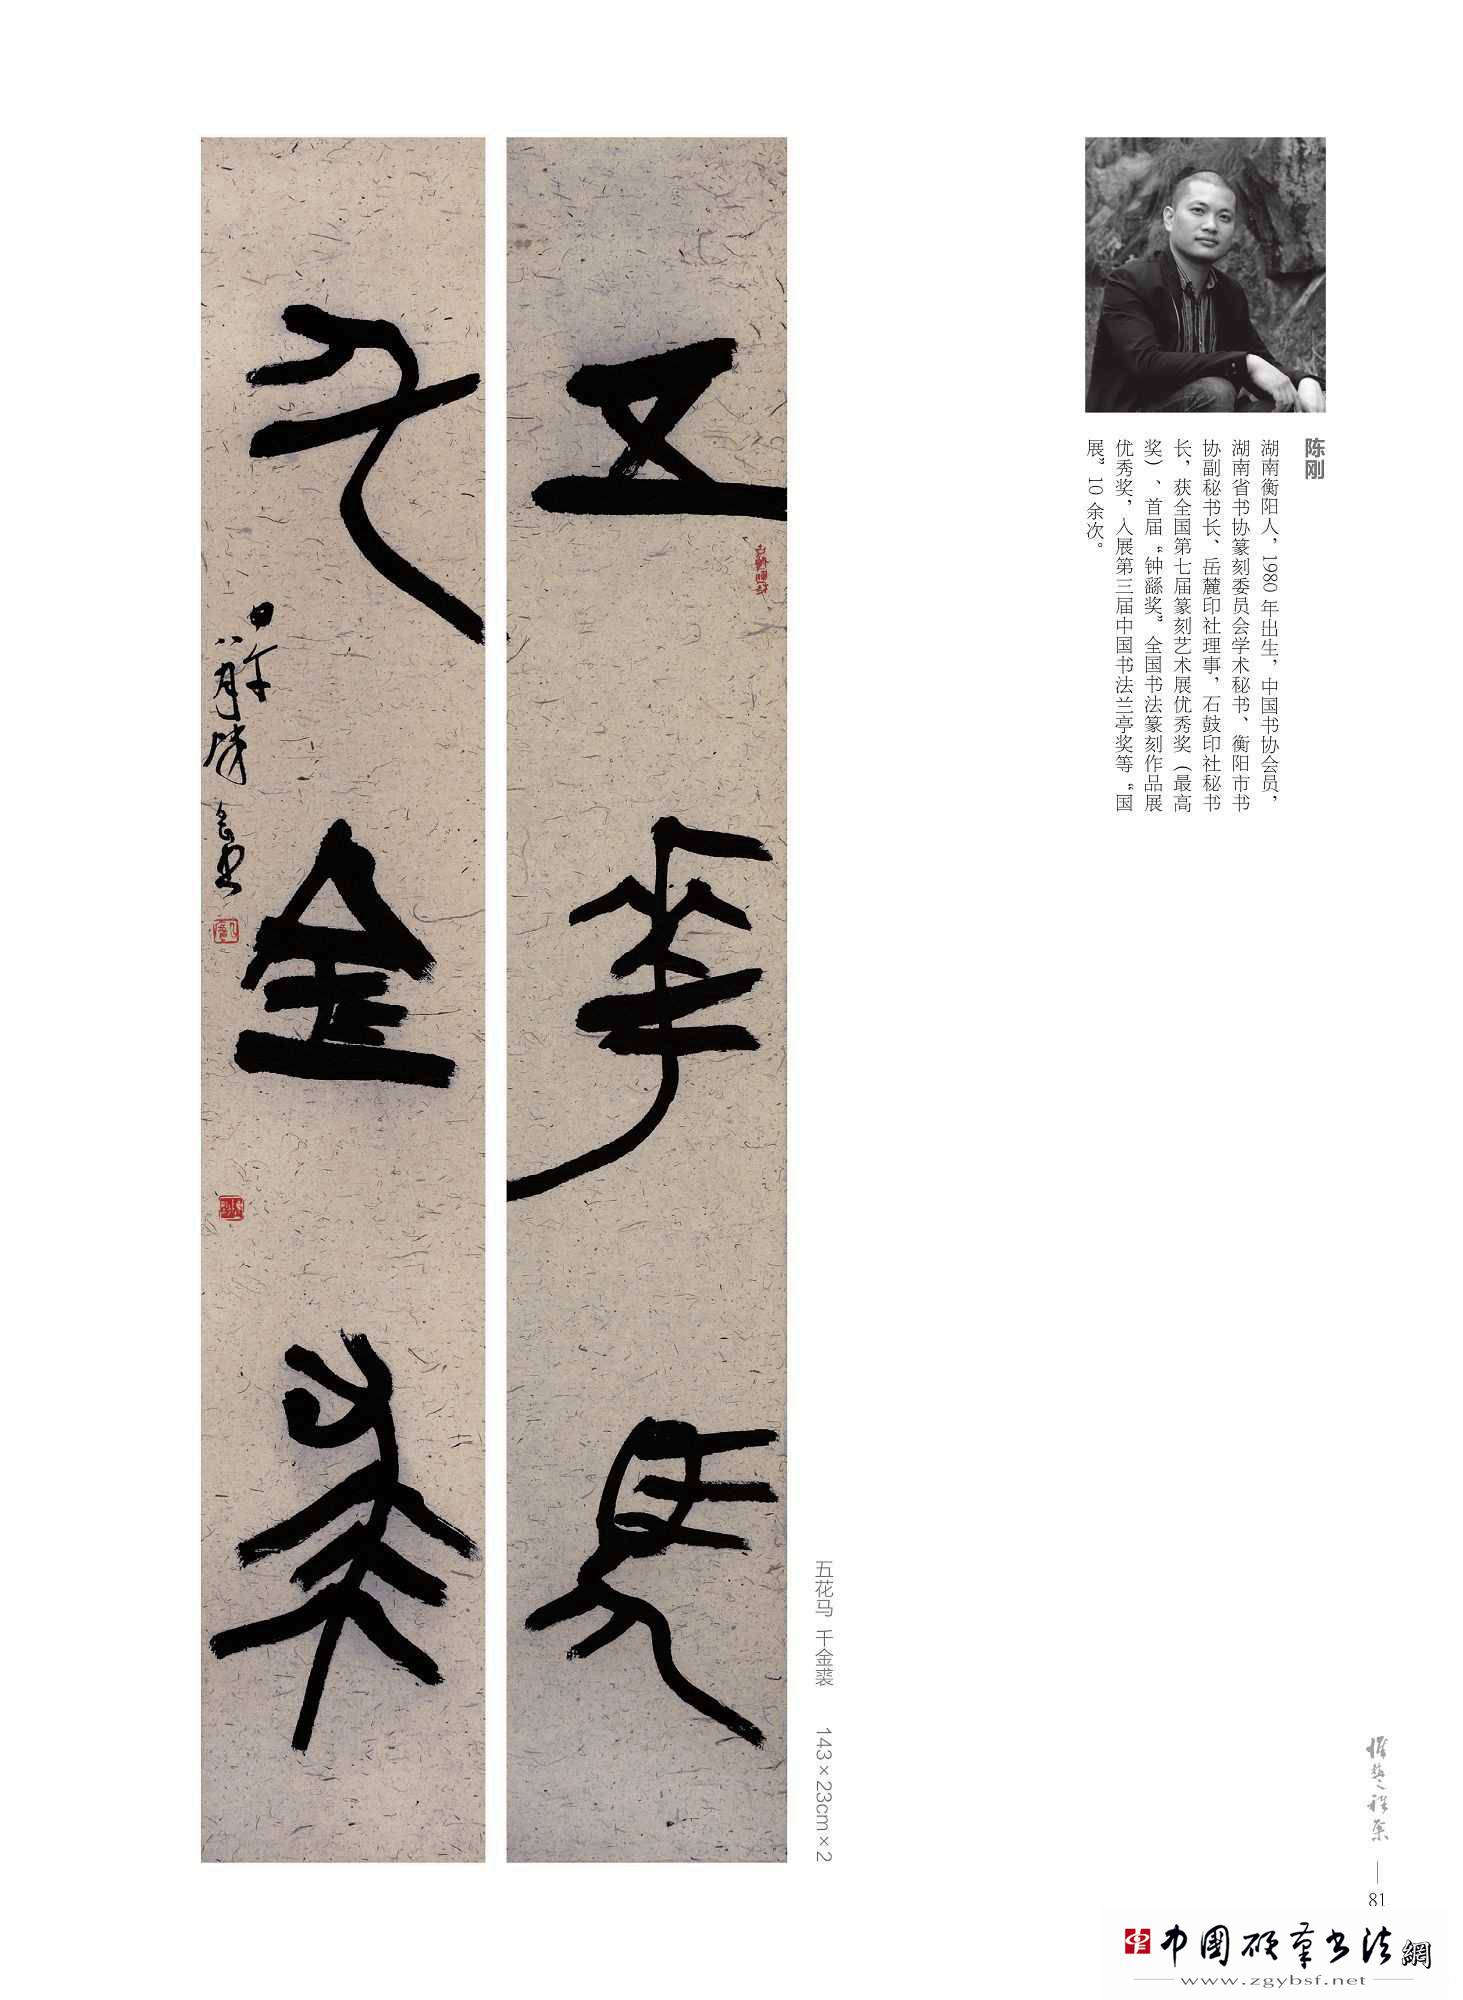 陈刚
湖南衡阳人，1980 年出生，中国书协会员，
湖南省书协篆刻委员会学术秘书、衡阳市书
协副秘书长、岳麓印社理事，石鼓印社秘书
长，获全国第七届篆刻艺术展优秀奖（最高
奖）、首届“钟繇奖”全国书法篆刻作品展
优秀奖，入展第三届中国书法兰亭奖等“国
展”10 余次。
五花马 千金裘 143×23cm×2
五華馬
千金裘
81
中国硬笔书法網
www.zgybsf.net